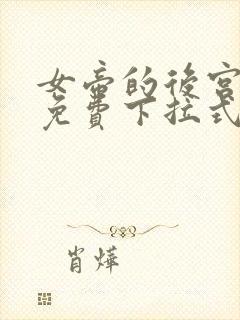 女帝的後宮
免費下拉式
肖燁